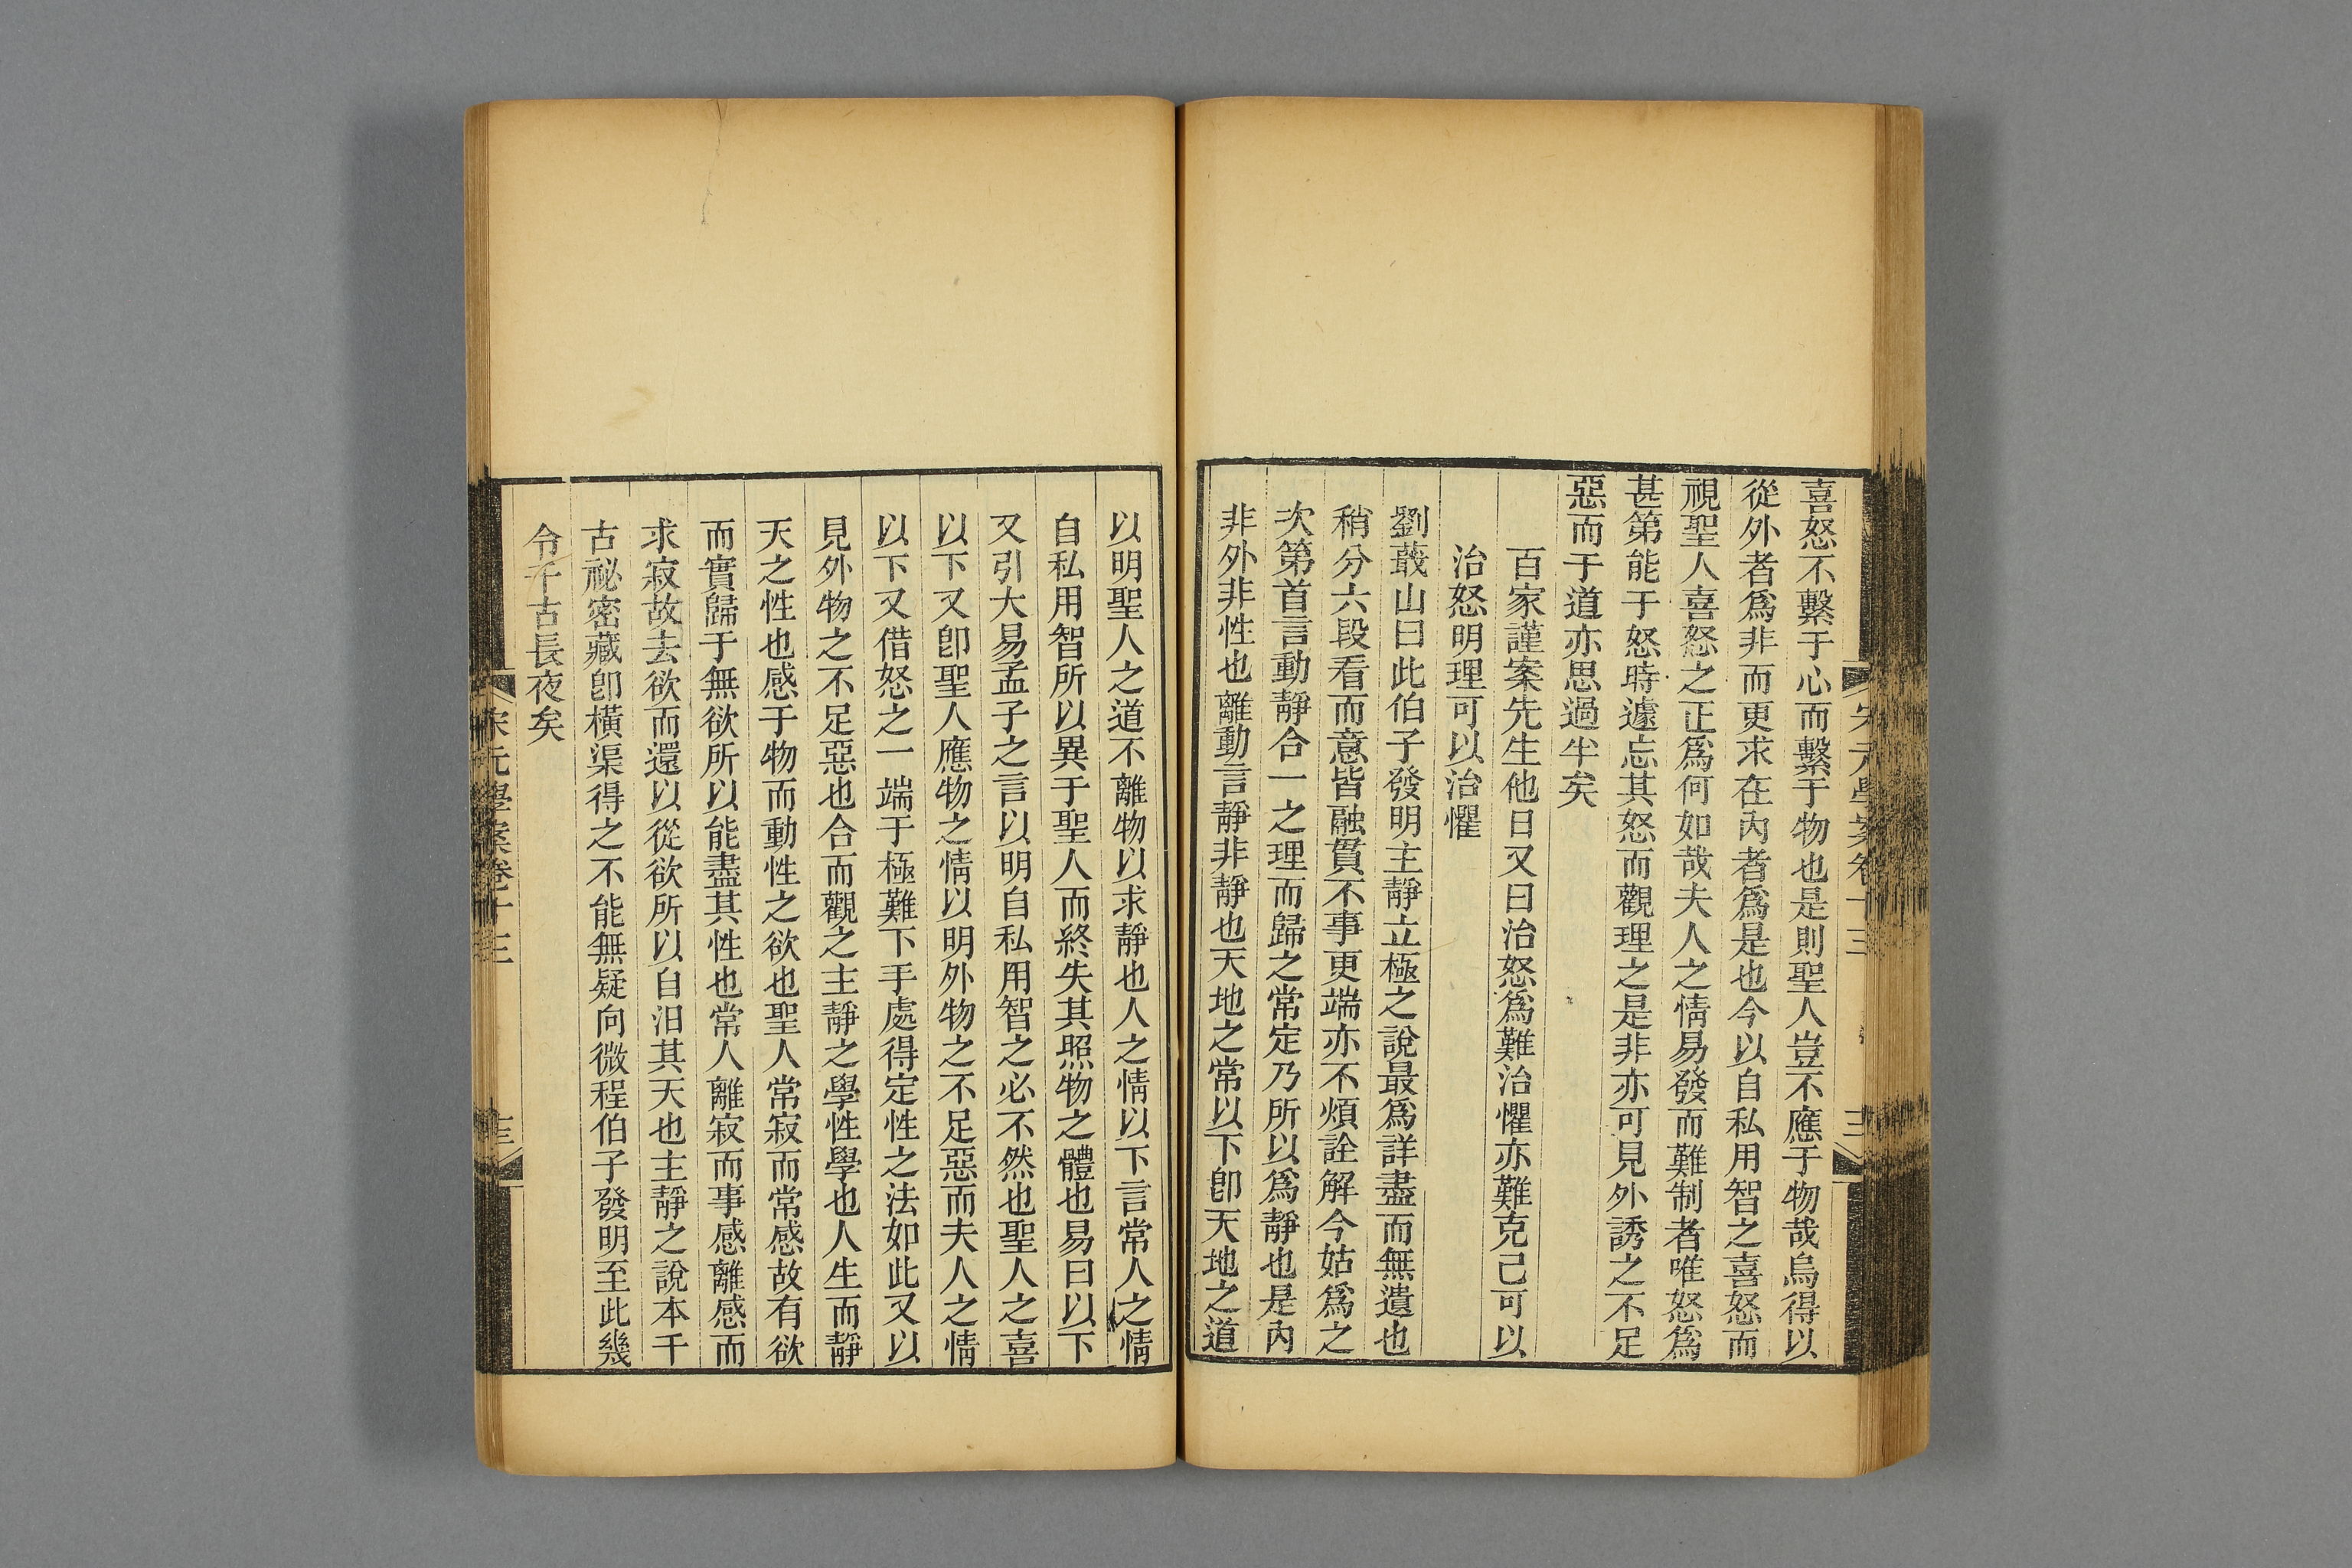 喜怒不繫于心而繫于物也是則聖人豈不應于物哉烏得以
從外者爲非而更求在內者爲是也今以自私用智之喜怒而
視聖人喜怒之正爲何如哉夫人之情易發而難制者唯怒爲
甚第能于怒時遽忘其怒而觀理之是非亦可見外誘之不足
惡而于道亦思過半矣
百家謹案先生他日又曰治怒爲難治懼亦難克己可以
治怒明理可以治懼
劉蕺山曰此伯子發明主靜立極之說最爲詳盡而無遺也
稍分六段看而意皆融貫不事更端亦不煩詮解今姑爲之
次第首言動靜合一之理而歸之常定乃所以爲靜也是內
非外非性也離動言靜非靜也天地之常以下卽天地之道
以明聖人之道不離物以求靜也人之情以下言常人之情
自私用智所以異于聖人而終失其照物之體也易曰以下
又引大易孟子之言以明自私用智之必不然也聖人之喜
以下又卽聖人應物之情以明外物之不足惡而夫人之情
以下又借怒之一端于極難下手處得定性之法如此又以
見外物之不足惡也合而觀之主靜之學性學也人生而靜
天之性也感于物而動性之欲也聖人常寂而常感故有欲
而實歸于無欲所以能盡其性也常人離寂而事感離感而
求寂故去欲而還以從欲所以自汨其天也主靜之說本千
古祕密藏卽橫渠得之不能無疑向微程伯子發明至此幾
令千古長夜矣
宋元學案卷十三